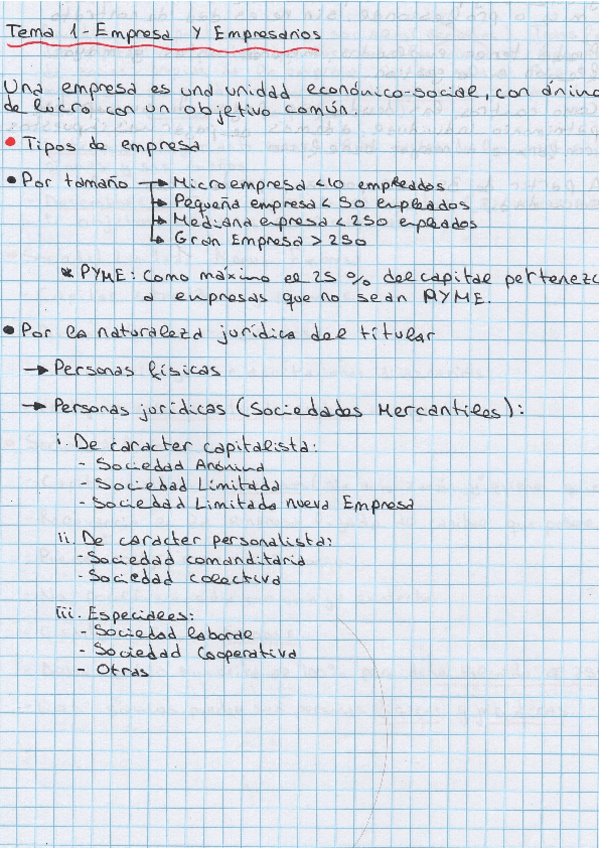 Tema 1 - Empresa Y Empresarios
Una empresa es una unidad económico-social, con ánimo
de lucro con un objetivo común.
• Tipos de empresa
• Por tamaño → Microempresa <10 empleados
→ Pequeña empresa < 50 empleados
→ Mediana epresa < 250 empleados
→ Gran Empresa > 250
* PYME: Como máximo el 25 % del capital pertenezc
a empresas que no sean PYME.
• Por la naturaleza jurídica del títular
→ Personas físicas
→ Personas jurídicas (Sociedades Mercantiles):
i. De caracter capitalista:
- Sociedad Anónima
- Sociedad Limitada
- Sociedad Limitada nueva Empresa
ii. De caracter personalista:
- Sociedad comanditaria
- Sociedad colectiva
iii. Especiales:
- Sociedad laborale
- Sociedad Cooperativa
- Otras